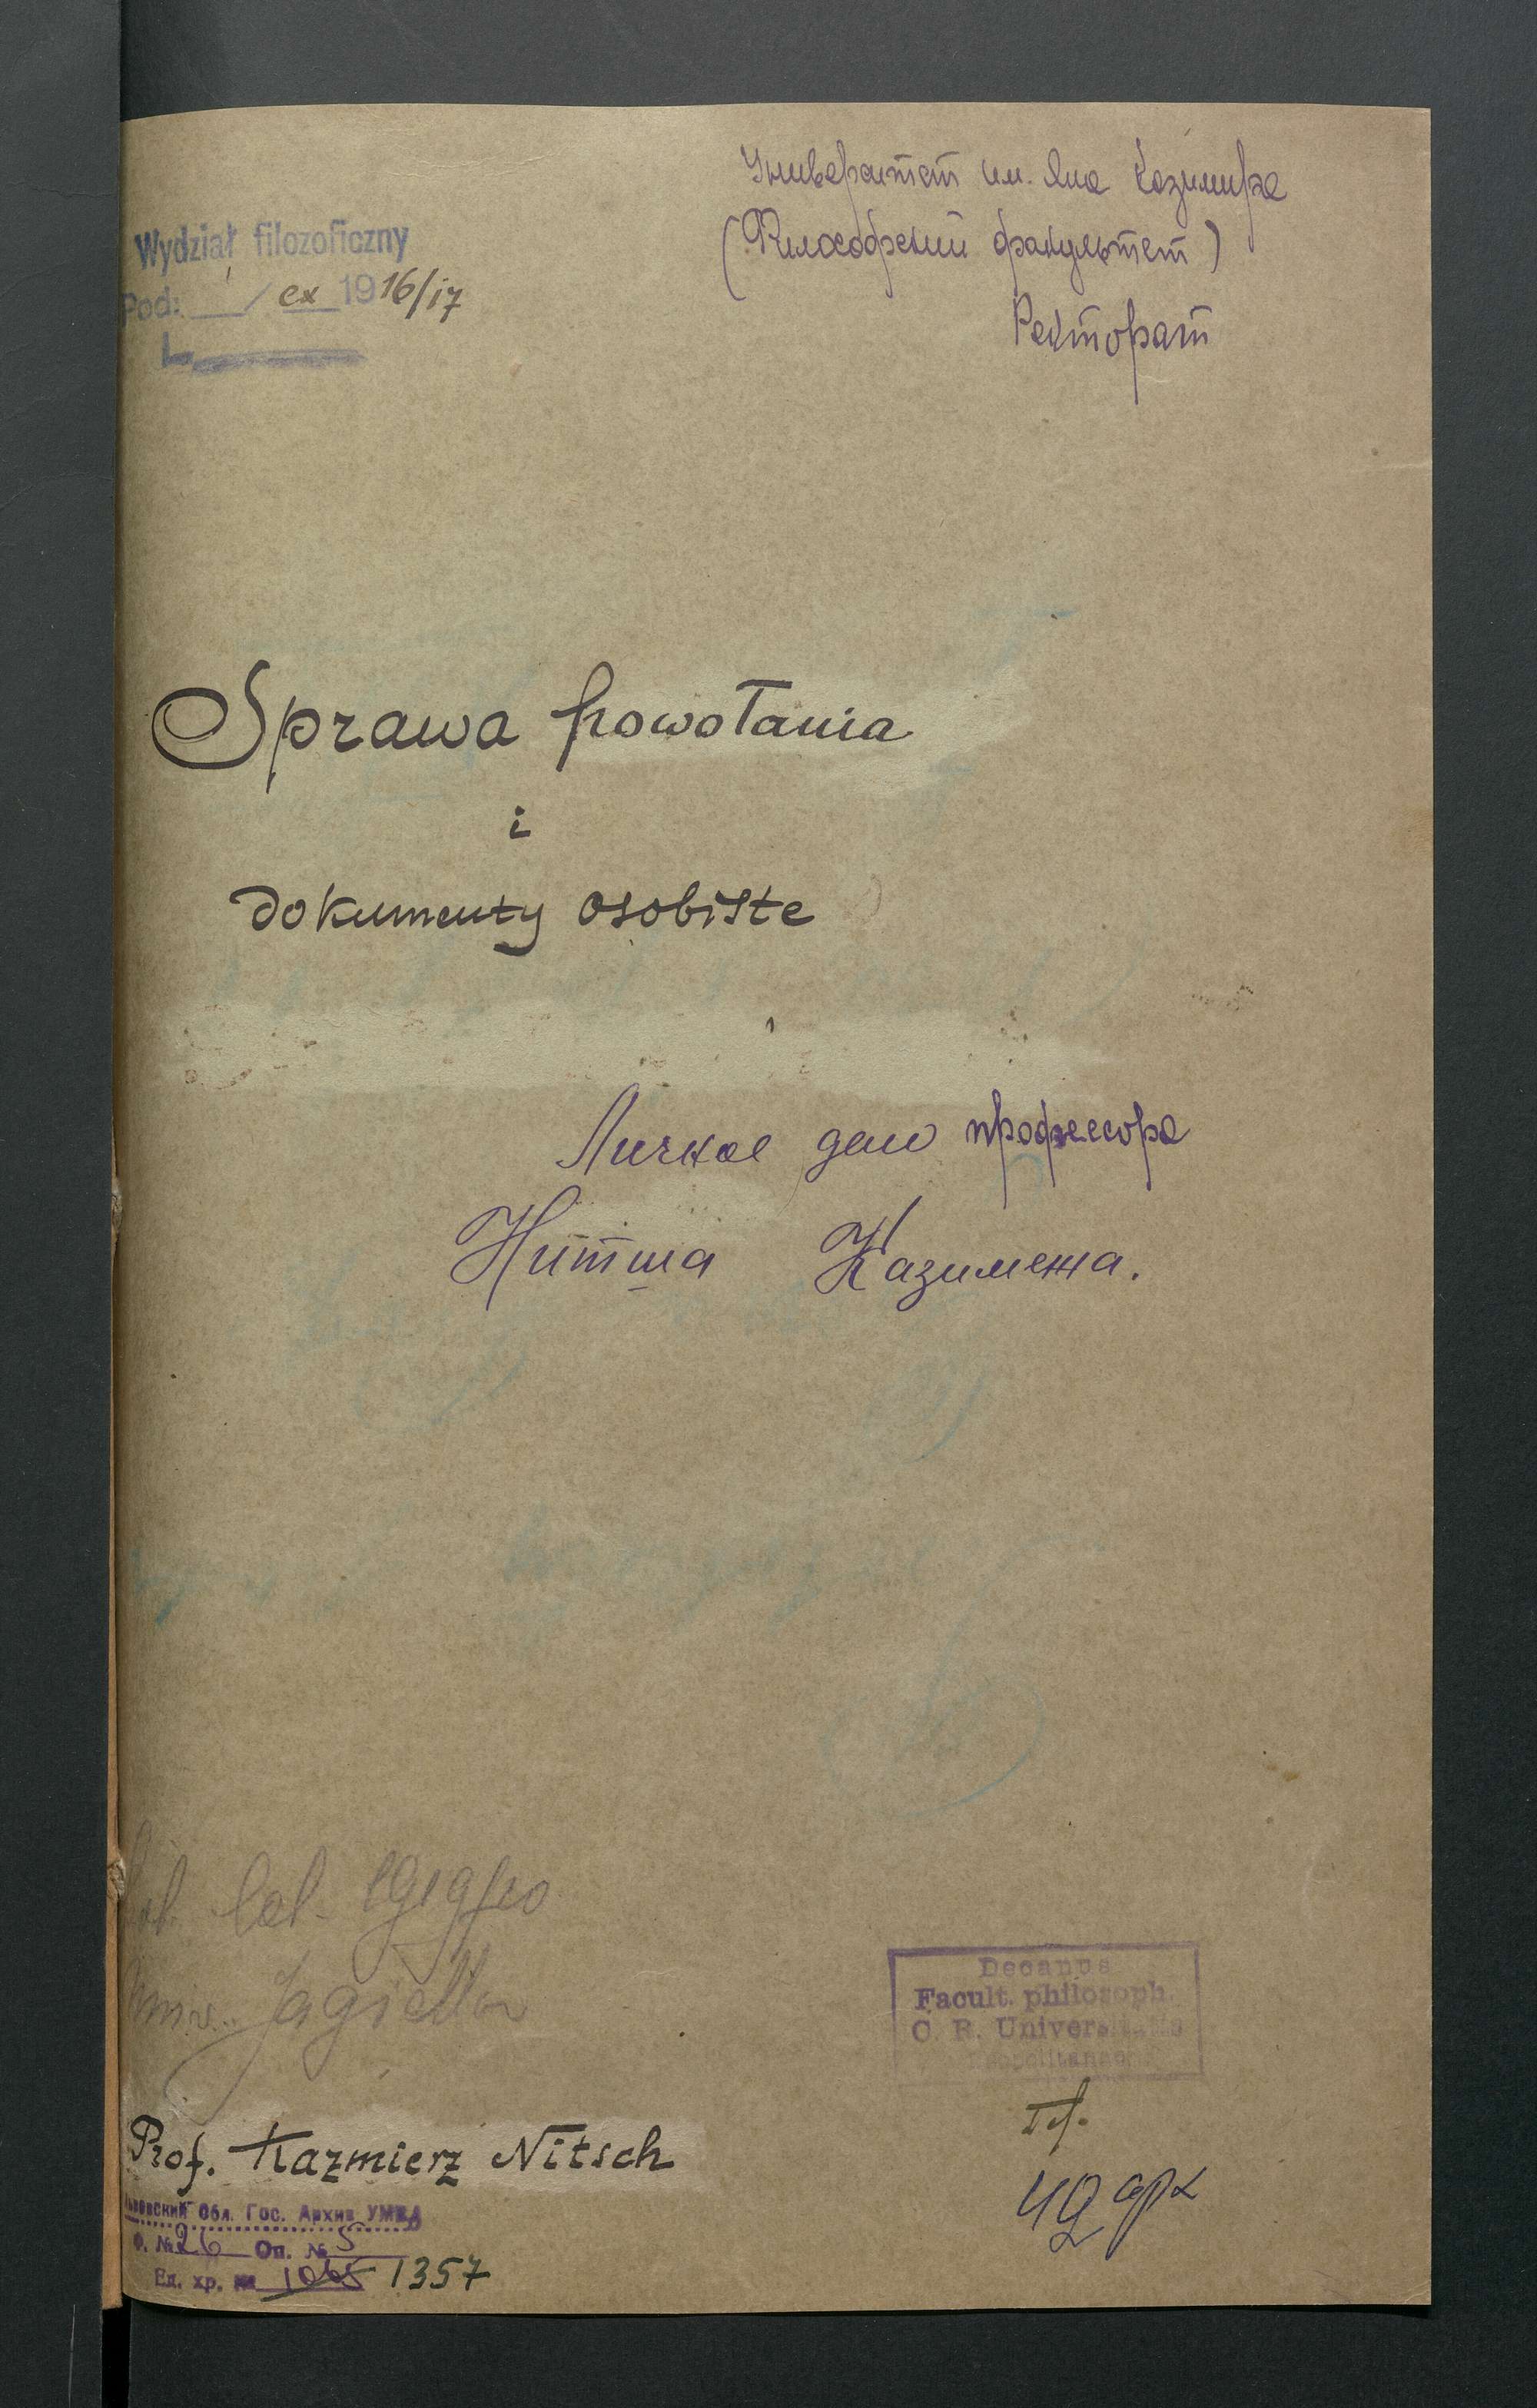 Университет им. Яна Казимира
(Философский факультет)
Ректорат
Wydział filozoficzny
Pod: / ex 1916/17
L
Sprawa powołania
i
dokumenty osobiste
Личное дело профессора
Нитша Казимежа.
Jagiellon
Decanus
Facult. philosoph.
C. R. Universitatis
Leopolitanae
42 арк
Prof. Kazmierz Nitsch
Львовский Обл. Гос. Архив УМВД
Ф. № 26 Оп. № 5
Ед. хр. № 1065 1357